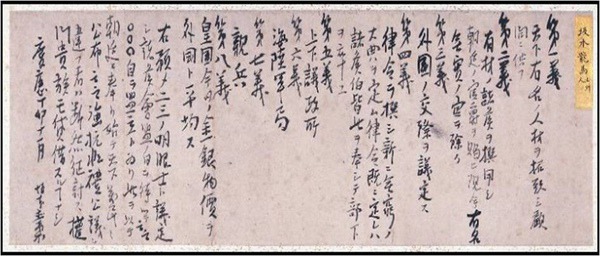 坂本龍馬
第一義
天下有名ノ人材ヲ招致シ顧
問ニ供フ
第二義
有材ノ諸侯ヲ撰用シ
朝廷ノ官爵ヲ賜ヒ現今有名
無実ノ官ヲ除ク
第三義
外国ノ交際ヲ議定ス
第四義
律令ヲ撰シ新ニ無窮ノ
大典ヲ定ム律令既ニ定レハ
諸侯伯皆此ヲ奉シテ部下
ヲ率ユ
第五義
上下議政所
第六義
海陸軍局
第七義
親兵
第八義
皇国今日ノ金銀物價ヲ
外国ト平均ス
右預メ二三ノ明眼士ト議定
シ諸侯會盟ノ日ヲ待ツテ云云
○○○自ラ盟主ト為リ此ヲ以テ
朝廷ニ奉リ始テ天下萬民ニ
公布云云強抗非禮公議ニ
違フ者ハ断然征討ス權
門貴族モ貸借スルコトナシ
慶應丁卯十一月 坂本直柔